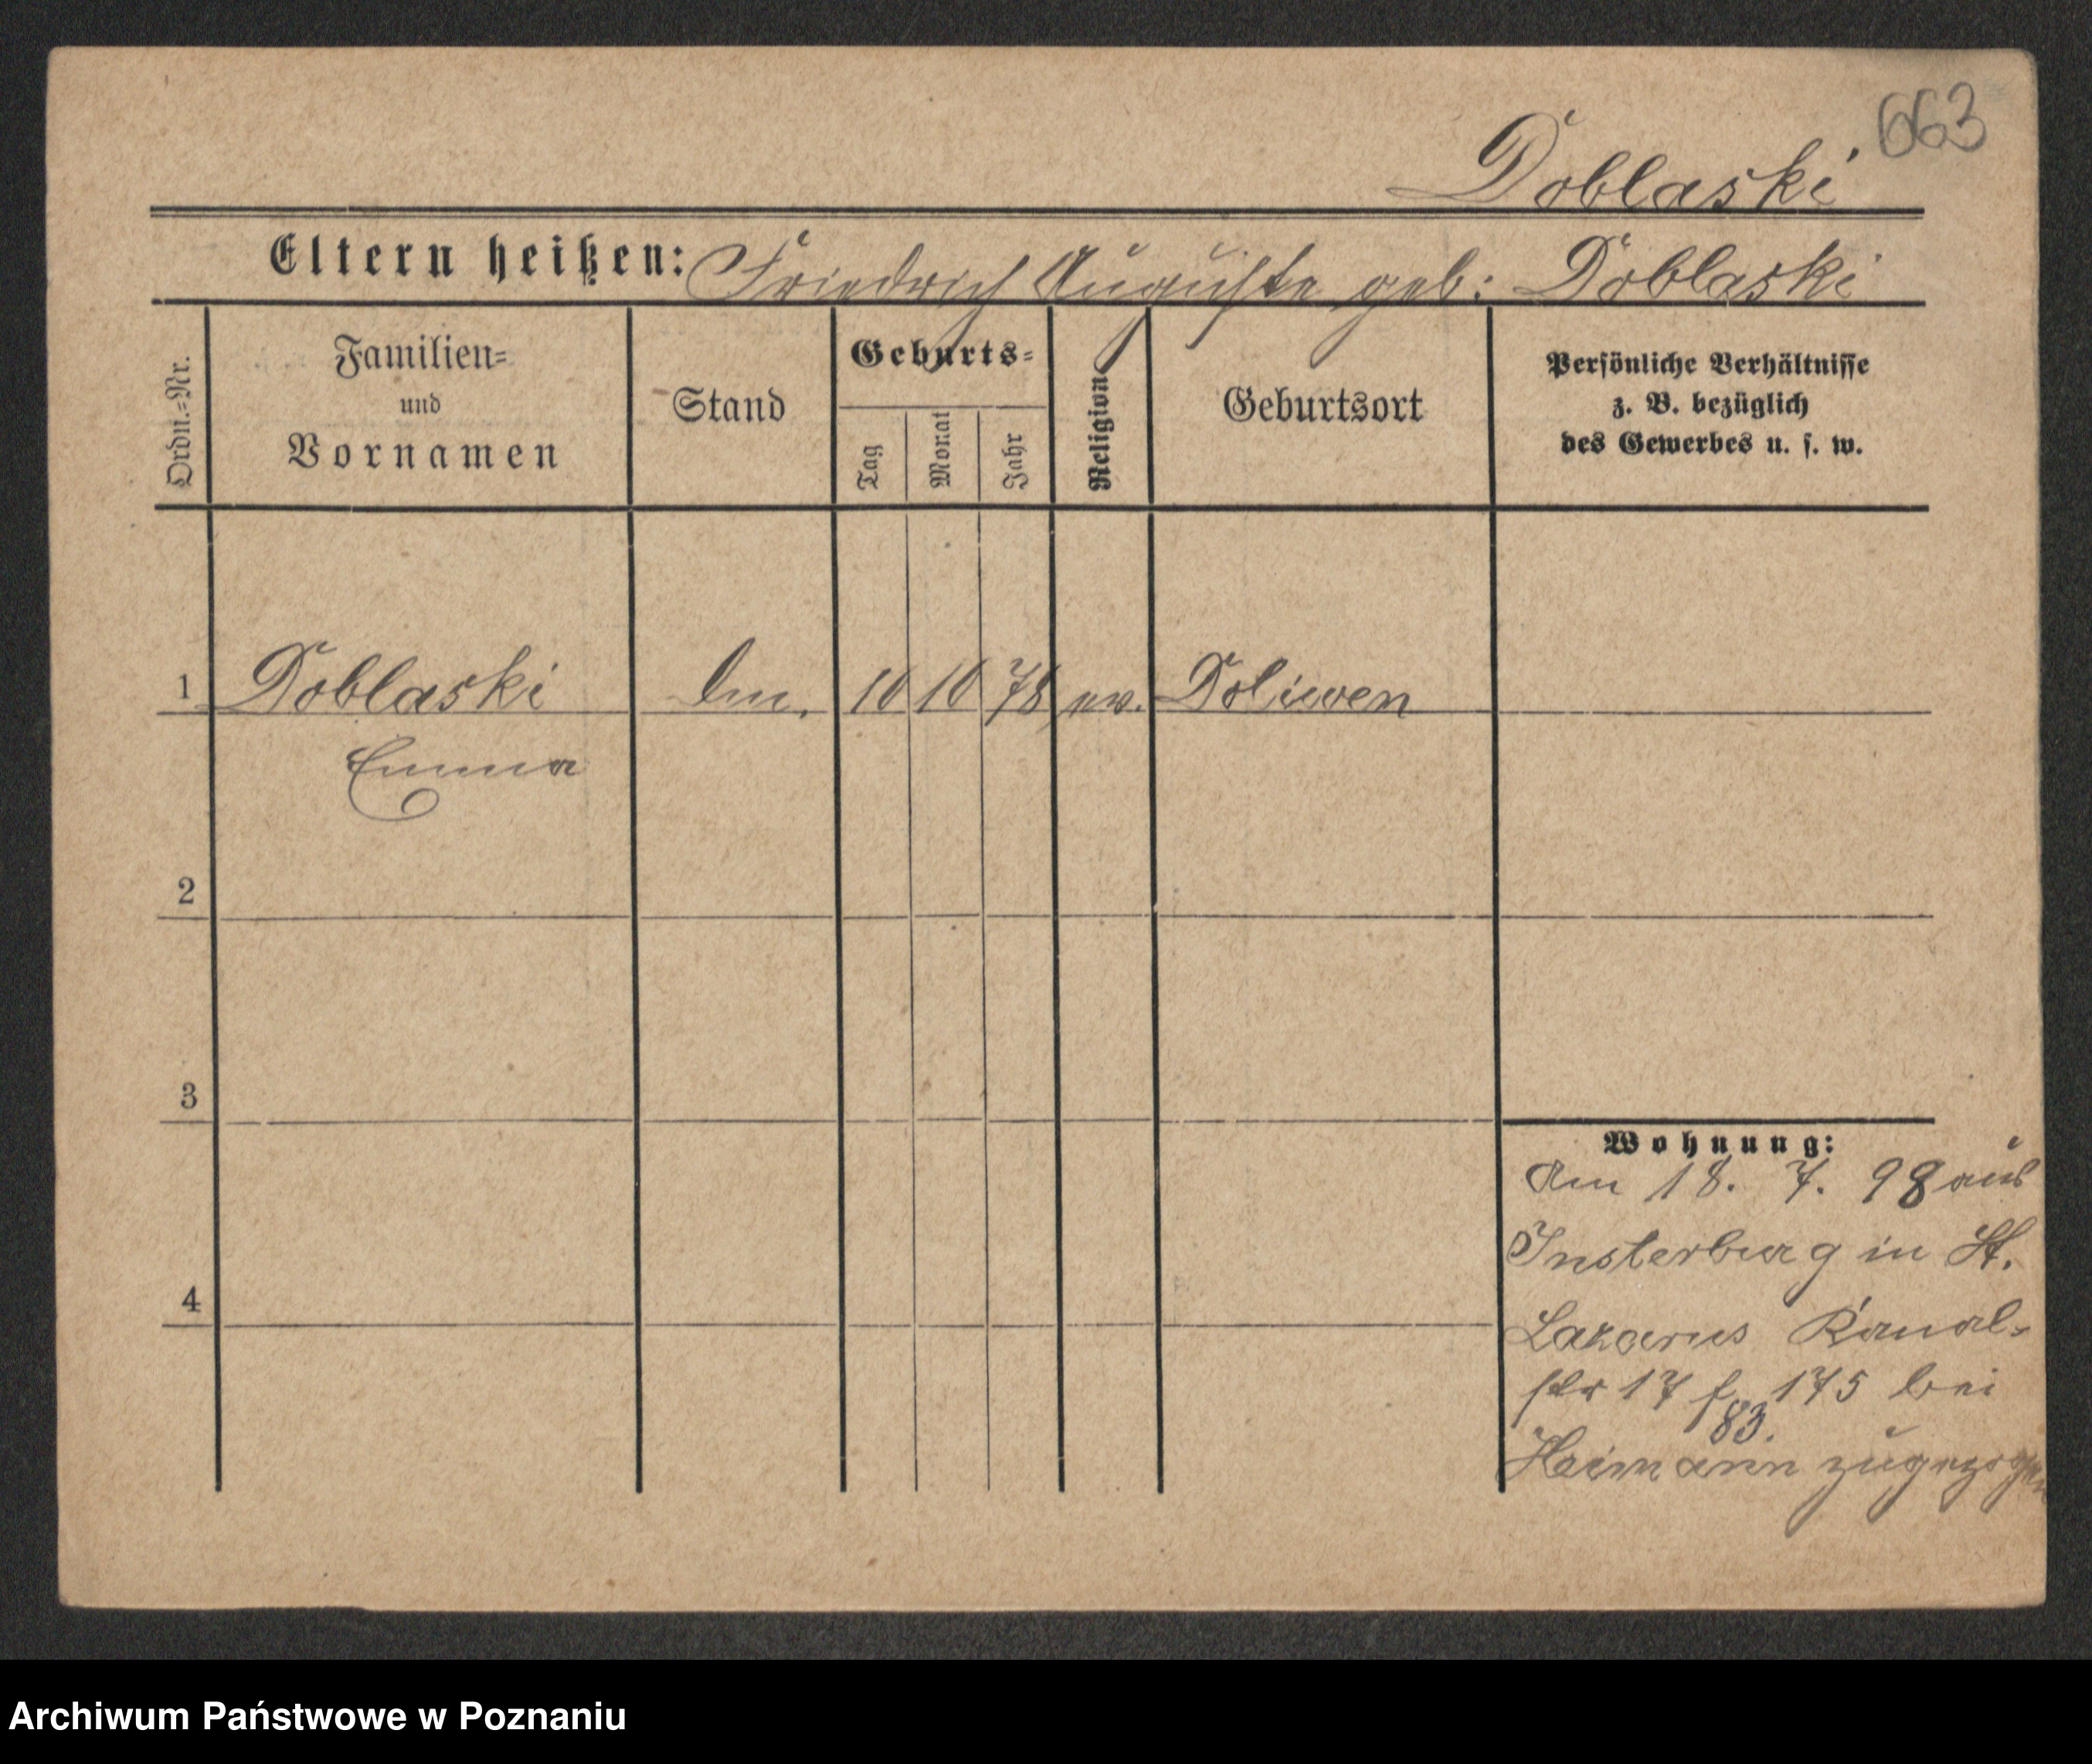 663
Doblaski
Eltern heißen: Friedrich Auguste geb: Doblaski
Ordn.=Nr.
Familien=
und
Vornamen
Stand
Geburts=
Tag
Monat
Jahr
Religion
Geburtsort
Persönliche Verhältnisse
z. B. bezüglich
des Gewerbes u. s. w.
1 Doblaski 10 10 78 ev. Doliwen
Emma
2
3
4
Wohnung:
Am 18. 7. 98 aus
Insterburg in St.
Lazarus Kanal-
str 17 f. 175 bei
83.
Heimann zugezogen
Archiwum Państwowe w Poznaniu